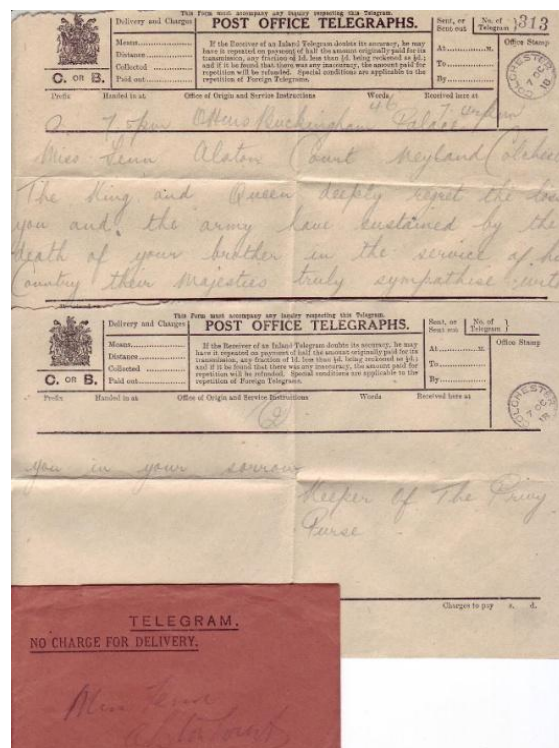 This Form must accompany any inquiry respecting this Telegram.
Delivery and Charges
POST OFFICE TELEGRAPHS.
Sent, or Sent out
No. of Telegram
313
Means
Distance
Collected
Paid out
C. OR B.
If the Receiver of an Inland Telegram doubts its accuracy, he may
have it repeated on payment of half the amount originally paid for its
transmission, any fraction of 1d. less than ½d. being reckoned as ½d.;
and if it be found that there was any inaccuracy, the amount paid for
repetition will be refunded. Special conditions are applicable to the
repetition of Foreign Telegrams.
At M.
To
By
Office Stamp
COLCHESTER
7 OC
18
Prefix Handed in at Office of Origin and Service Instructions Words Received here at
7.5pm OHMS Buckingham Palace 46
Miss Court Colches
The King and Queen deeply regret the loss
you and the army have sustained by the
death of your brother in the service of his
Country their Majesties truly sympathise with
This Form must accompany any inquiry respecting this Telegram.
Delivery and Charges
POST OFFICE TELEGRAPHS.
Sent, or Sent out
No. of Telegram
Means
Distance
Collected
Paid out
C. OR B.
If the Receiver of an Inland Telegram doubts its accuracy, he may
have it repeated on payment of half the amount originally paid for its
transmission, any fraction of 1d. less than ½d. being reckoned as ½d.;
and if it be found that there was any inaccuracy, the amount paid for
repetition will be refunded. Special conditions are applicable to the
repetition of Foreign Telegrams.
At M.
To
By
Office Stamp
COLCHESTER
7 OC
18
Prefix Handed in at Office of Origin and Service Instructions Words Received here at
(2)
you in your sorrow
Keeper of The Privy
Purse
Charges to pay s. d.
TELEGRAM.
NO CHARGE FOR DELIVERY.
Miss
Court